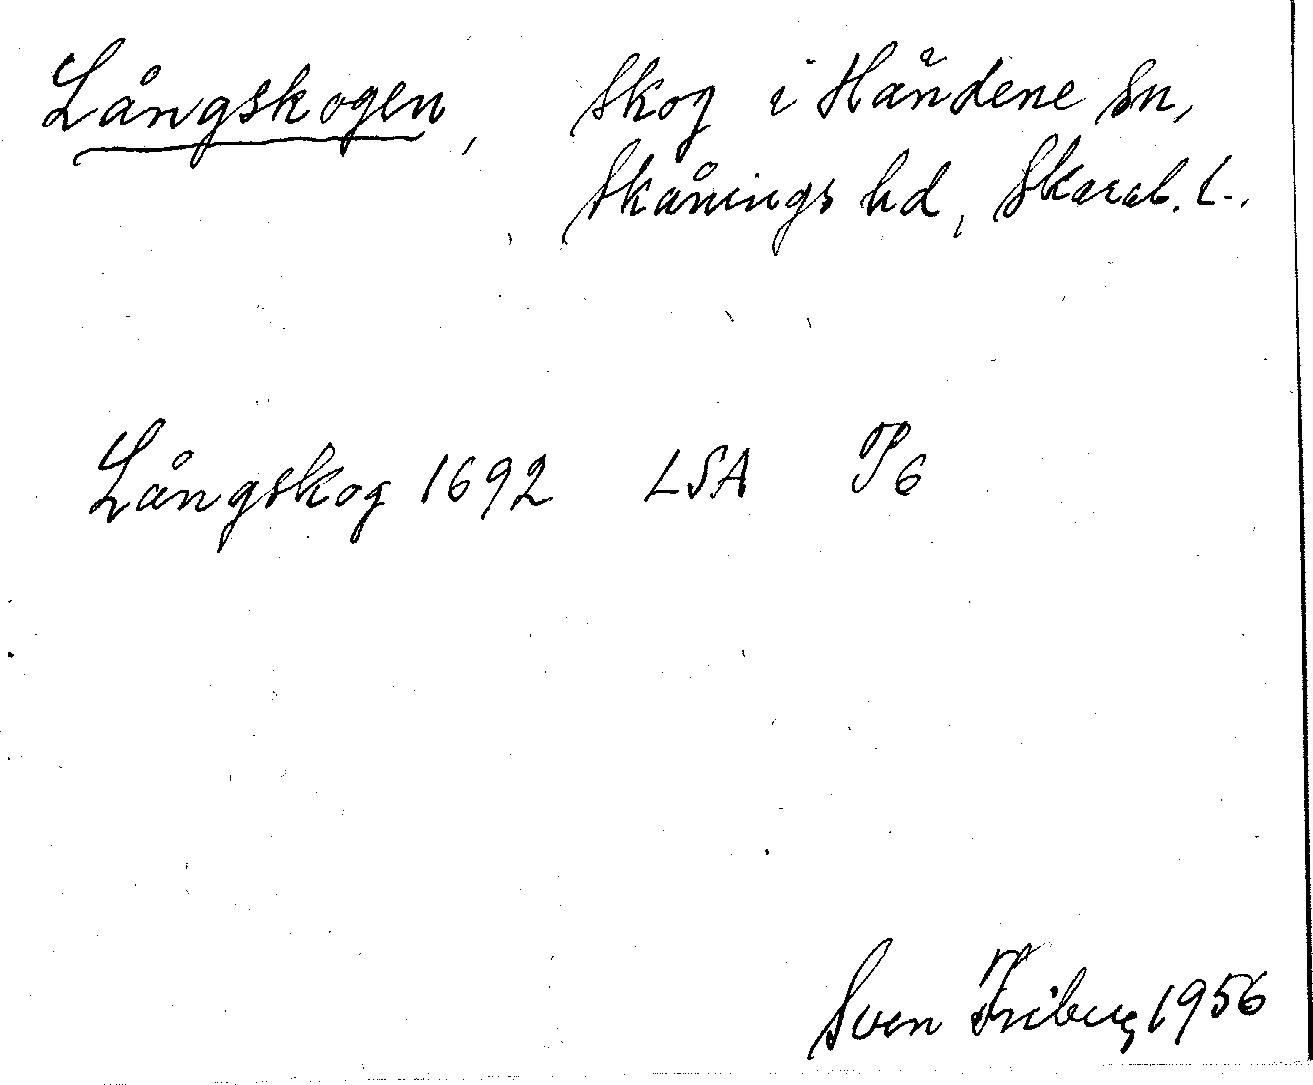 Långskogen, Skog i Händene Sn,
Skånings hd, Skarab. L.
Långskog 1692 LSA P6
Sven Friberg 1956